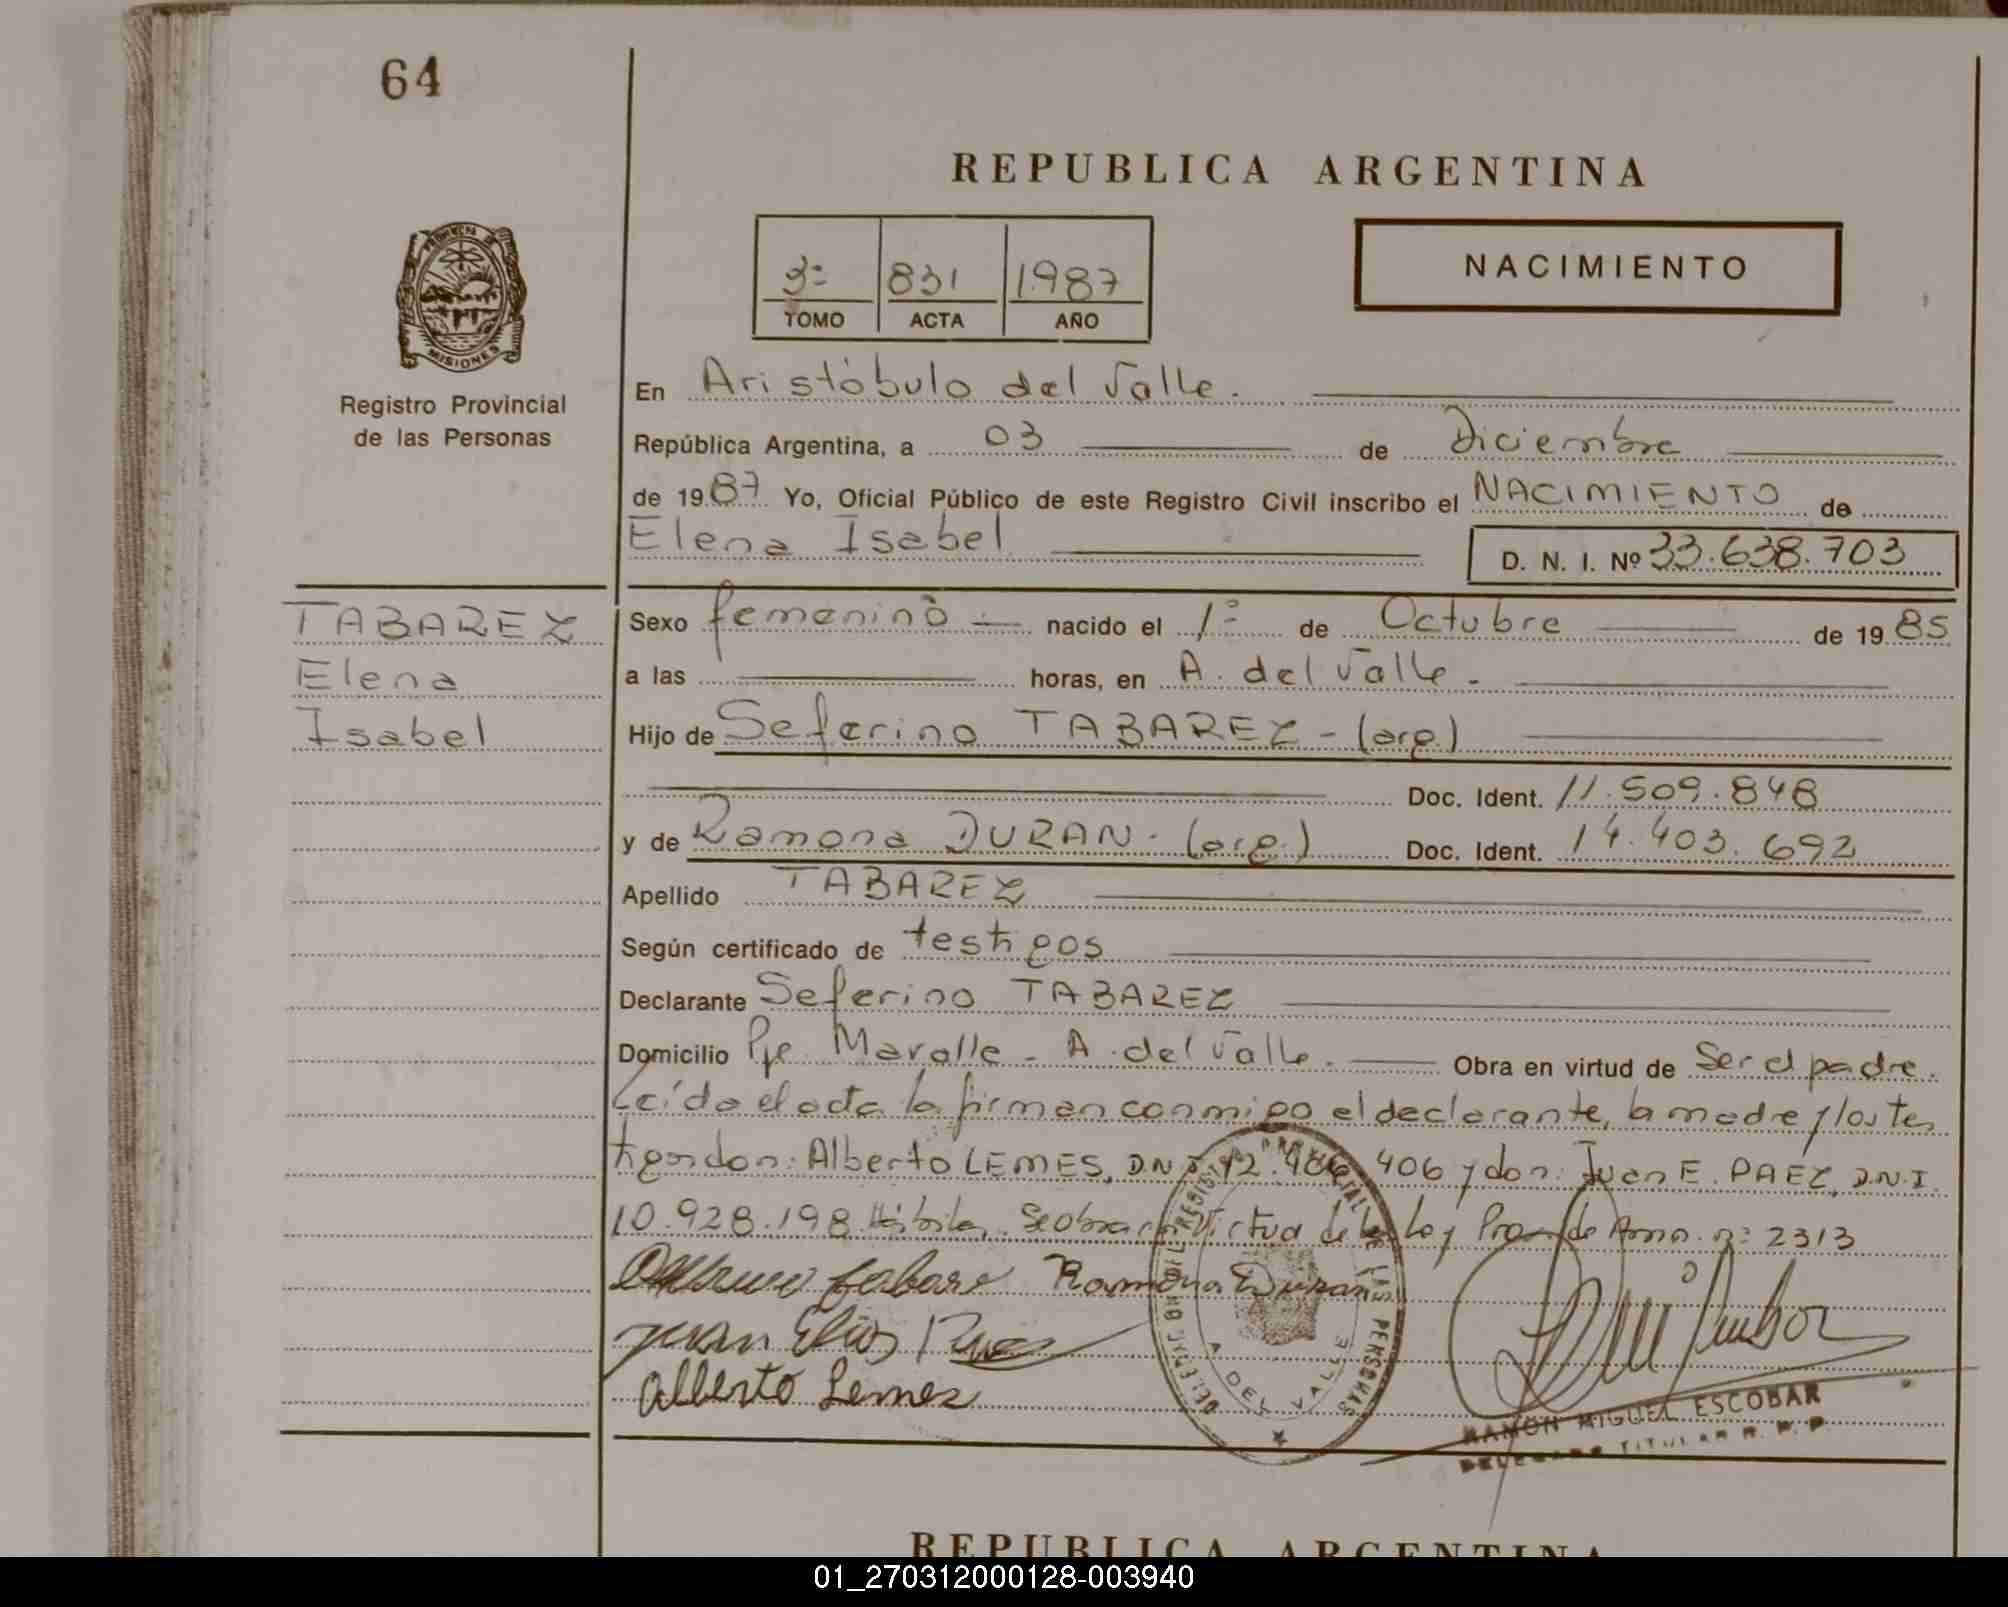 64
REPUBLICA ARGENTINA
3º 831 1987
TOMO ACTA AÑO
NACIMIENTO
PROVINCIA DE MISIONES
Registro Provincial
de las Personas
En Aristóbulo del Valle.
República Argentina, a 03 de Diciembre
de 1987 Yo, Oficial Público de este Registro Civil inscribo el NACIMIENTO de
Elena Isabel D. N. I. Nº 33.638.703
TABAREZ
Elena
Isabel
Sexo femenino nacido el 1º de Octubre de 1985
a las horas, en A. del Valle.
Hijo de Seferino TABAREZ - (arg.)
Doc. Ident. 11.509.848
y de Ramona DURAN - (arg.) Doc. Ident. 14.403.692
Apellido TABAREZ
Según certificado de testigos
Declarante Seferino TABAREZ
Domicilio Pje. Maralle - A. del Valle. Obra en virtud de Ser el padre.
Leída el acta la firman conmigo el declarante, la madre y los tes
tigos don: Alberto LEMES, D.N.I. 12. 406 y don: Juan E. PAEZ, D.N.I.
10.928.198 Hábiles. Se obra en Virtud de la Ley Prov. de Amn. nº 2313
Ramona Duran
Juan Elias Paez
Alberto Lemez
DELEGAC. DEL REGISTRO PROVINCIAL DE LAS PERSONAS
A. DEL VALLE
RAMON MIGUEL ESCOBAR
DELEGADO TITULAR R. P. P.
REPUBLICA ARGENTINA
01_270312000128-003940